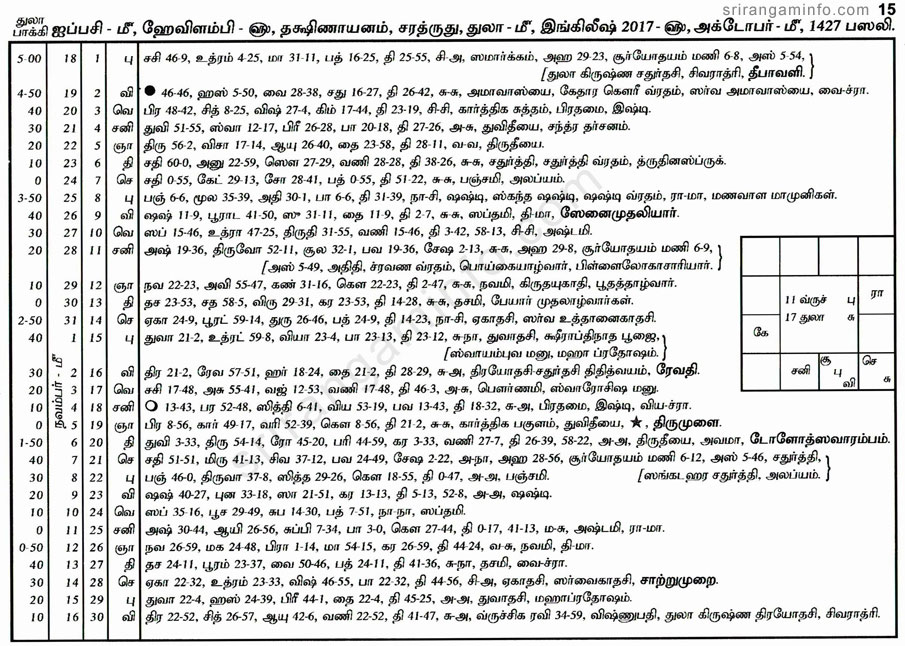 srirangaminfo.com 15
துலா பாக்கி ஐப்பசி - மீ, ஹேவிளம்பி - ஹு, தக்ஷிணாயனம், சரத்ருது, துலா - மீ, இங்கிலீஷ் 2017- ஹு, அக்டோபர் - மீ, 1427 பஸலி.
5-00 18 1 பு சசி 46-9, உத்ரம் 4-25, மா 31-11, பத் 16-25, தி 25-55, சி-அ, ஸமார்க்கம், அஹ 29-23, சூர்யோதயம் மணி 6-8, அஸ் 5-54,
[துலா கிருஷ்ண சதுர்தசி, சிவராத்ரி, தீபாவளி.
4-50 19 2 வி ● 46-46, ஹஸ் 5-50, வை 28-38, சது 16-27, தி 26-42, சு-சு, அமாவாஸ்யை, கேதார கௌரீ வ்ரதம், ஸர்வ அமாவாஸ்யை, வை-ச்ரா.
40 20 3 வெ பிர 48-42, சித் 8-25, விஷ் 27-4, கிம் 17-44, தி 23-19, சி-சி, கார்த்திக சுத்தம், பிரதமை, இஷ்டி.
30 21 4 சனி துவி 51-55, ஸ்வா 12-17, பிரீ 26-28, பா 20-18, தி 27-26, அ-சு, துவிதீயை, சந்த்ர தர்சனம்.
20 22 5 ஞா திரு 56-2, விசா 17-14, ஆயு 26-40, தை 23-58, தி 28-11, வ-வ, திருதீயை.
10 23 6 தி சதி 60-0, அனு 22-59, ஸௌ 27-29, வணி 28-28, தி 38-26, சு-சு, சதுர்த்தி, சதுர்த்தி வ்ரதம், த்ருதினஸ்ப்ருக்.
0 24 7 செ சதி 0-55, கேட் 29-13, சோ 28-41, பத் 0-55, தி 51-22, சு-சு, பஞ்சமி, அலப்யம்.
3-50 25 8 பு பஞ் 6-6, மூல 35-39, அதி 30-1, பா 6-6, தி 31-39, நா-சி, ஷஷ்டி, ஸ்கந்த ஷஷ்டி, ஷஷ்டி வ்ரதம், ரா-மா, மணவாள மாமுனிகள்.
40 26 9 வி ஷஷ் 11-9, பூராட 41-50, ஸு 31-11, தை 11-9, தி 2-7, சு-சு, ஸப்தமி, தி-மா, ஸேனைமுதலியார்.
30 27 10 வெ ஸப் 15-46, உத்ரா 47-25, திருதி 31-55, வணி 15-46, தி 3-42, 58-13, சி-சி, அஷ்டமி.
20 28 11 சனி அஷ் 19-36, திருவோ 52-11, சூல 32-1, பவ 19-36, சேஷ 2-13, சு-சு, அஹ 29-8, சூர்யோதயம் மணி 6-9,
[அஸ் 5-49, அதிதி, ச்ரவண வ்ரதம், பொய்கையாழ்வார், பிள்ளைலோகாசாரியார்.
10 29 12 ஞா நவ 22-23, அவி 55-47, கண் 31-16, கௌ 22-23, தி 2-47, சு-சு, நவமி, கிருதயுகாதி, பூதத்தாழ்வார்.
0 30 13 தி தச 23-53, சத 58-5, விரு 29-31, கர 23-53, தி 14-28, சு-சு, தசமி, பேயார் முதலாழ்வார்கள்.
2-50 31 14 செ ஏகா 24-9, பூரட் 59-14, துரு 26-46, பத் 24-9, தி 14-23, நா-சி, ஏகாதசி, ஸர்வ உத்தானைகாதசி.
40 1 15 பு துவா 21-2, உத்ரட் 59-8, வியா 23-4, பா 23-13, தி 23-12, சு-நா, துவாதசி, க்ஷீராப்திநாத பூஜை,
[ஸ்வாயம்புவ மனு, மஹா ப்ரதோஷம்.
நவம்பர் - மீ
30 2 16 வி திர 21-2, ரேவ 57-51, ஹர் 18-24, தை 21-2, தி 28-29, சு-அ, திரயோதசி-சதுர்தசி திதித்வயம், ரேவதி.
20 3 17 வெ சசி 17-48, அசு 55-41, வஜ் 12-53, வணி 17-48, தி 46-3, அ-சு, பௌர்ணமி, ஸ்வாரோசிஷ மனு.
10 4 18 சனி ○ 13-43, பர 52-48, ஸித்தி 6-41, விய 53-19, பவ 13-43, தி 18-32, சு-அ, பிரதமை, இஷ்டி, விய-ச்ரா.
0 5 19 ஞா பிர 8-56, கார் 49-17, வரி 52-39, கௌ 8-56, தி 21-2, சு-சு, கார்த்திக பகுளம், துவிதீயை, ★, திருமுளை.
1-50 6 20 தி துவி 3-33, திரு 54-14, ரோ 45-20, பரி 44-59, கர 3-33, வணி 27-7, தி 26-39, 58-22, அ-அ, திருதீயை, அவமா, டோளோத்ஸவாரம்பம்.
40 7 21 செ சதி 51-51, மிரு 41-31, சிவ 37-12, பவ 24-49, சேஷ 2-22, அ-நா, அஹ 28-56, சூர்யோதயம் மணி 6-12, அஸ் 5-46, சதுர்த்தி,
30 8 22 பு பஞ் 46-0, திருவா 37-8, ஸித்த 29-26, கௌ 18-55, தி 0-47, அ-அ, பஞ்சமி. [ஸங்கடஹர சதுர்த்தி, அலப்யம்.
20 9 23 வி ஷஷ் 40-27, புன 33-18, ஸா 21-51, கர 13-13, தி 5-13, 52-8, அ-அ, ஷஷ்டி.
10 10 24 வெ ஸப் 35-16, பூச 29-49, சுப 14-30, பத் 7-51, நா-நா, ஸப்தமி.
0 11 25 சனி அஷ் 30-44, ஆயி 26-56, சுப்பி 7-34, பா 3-0, கௌ 27-44, தி 0-17, 41-13, ம-சு, அஷ்டமி, ரா-மா.
0-50 12 26 ஞா நவ 26-59, மக 24-48, பிரா 1-14, மா 54-15, கர 26-59, தி 44-24, வ-சு, நவமி, தி-மா.
40 13 27 தி தச 24-11, பூரம் 23-37, வை 50-46, பத் 24-11, தி 41-36, சு-நா, தசமி, வை-ச்ரா.
30 14 28 செ ஏகா 22-32, உத்ரம் 23-33, விஷ் 46-55, பா 22-32, தி 44-56, சி-அ, ஏகாதசி, ஸர்வைகாதசி, சாற்றுமுறை.
20 15 29 பு துவா 22-4, ஹஸ் 24-39, பிரீ 44-1, தை 22-4, தி 45-25, அ-அ, துவாதசி, மஹாப்ரதோஷம்.
10 16 30 வி திர 22-52, சித் 26-57, ஆயு 42-6, வணி 22-52, தி 41-47, சு-அ, வ்ருச்சிக ரவி 34-59, விஷ்ணுபதி, துலா கிருஷ்ண திரயோதசி, சிவராத்ரி.
11 வ்ருச் பு ரா
17 துலா சு
கே
சனி சூ பு வி செ சு
srirangaminfo.com